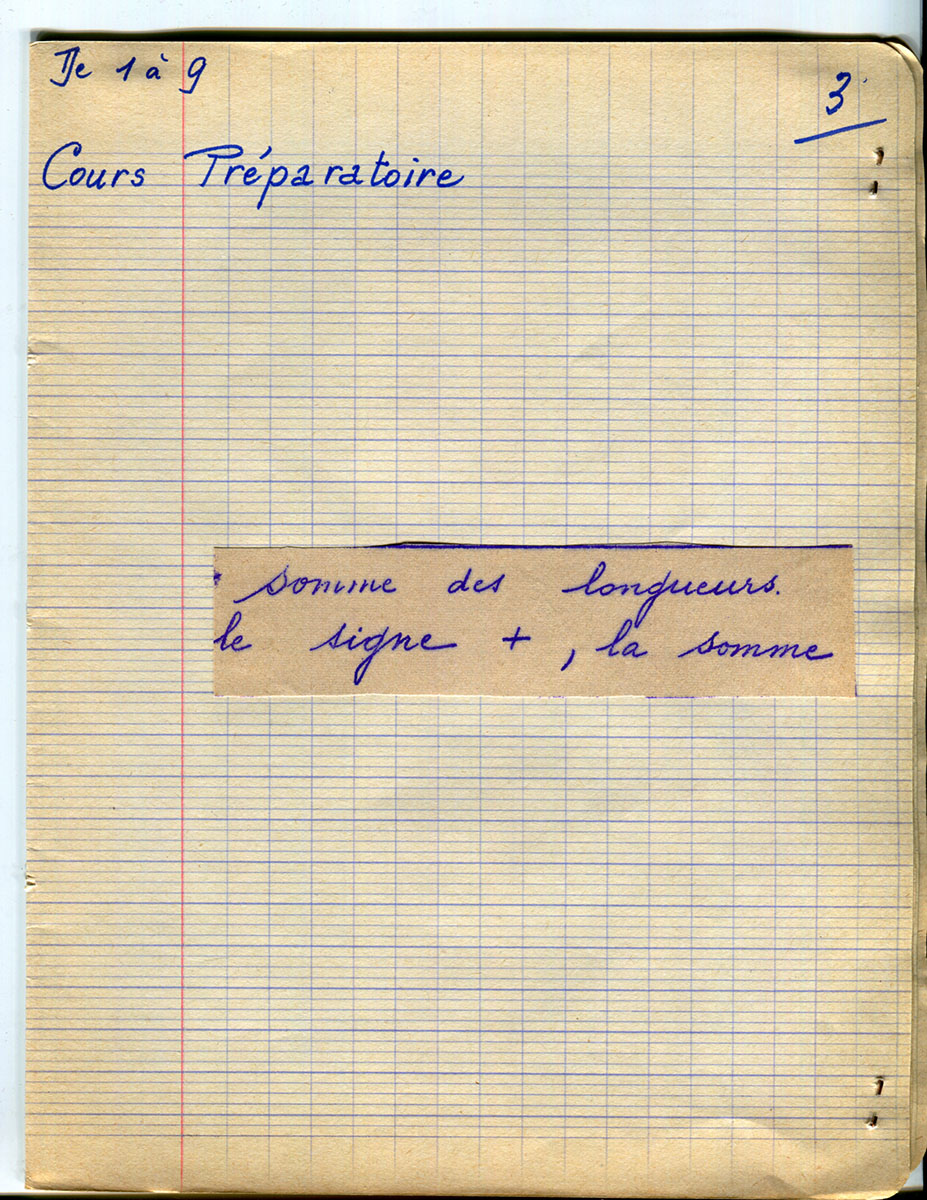 De 1 à 9
3
Cours Préparatoire
somme des longueurs.
le signe + , la somme